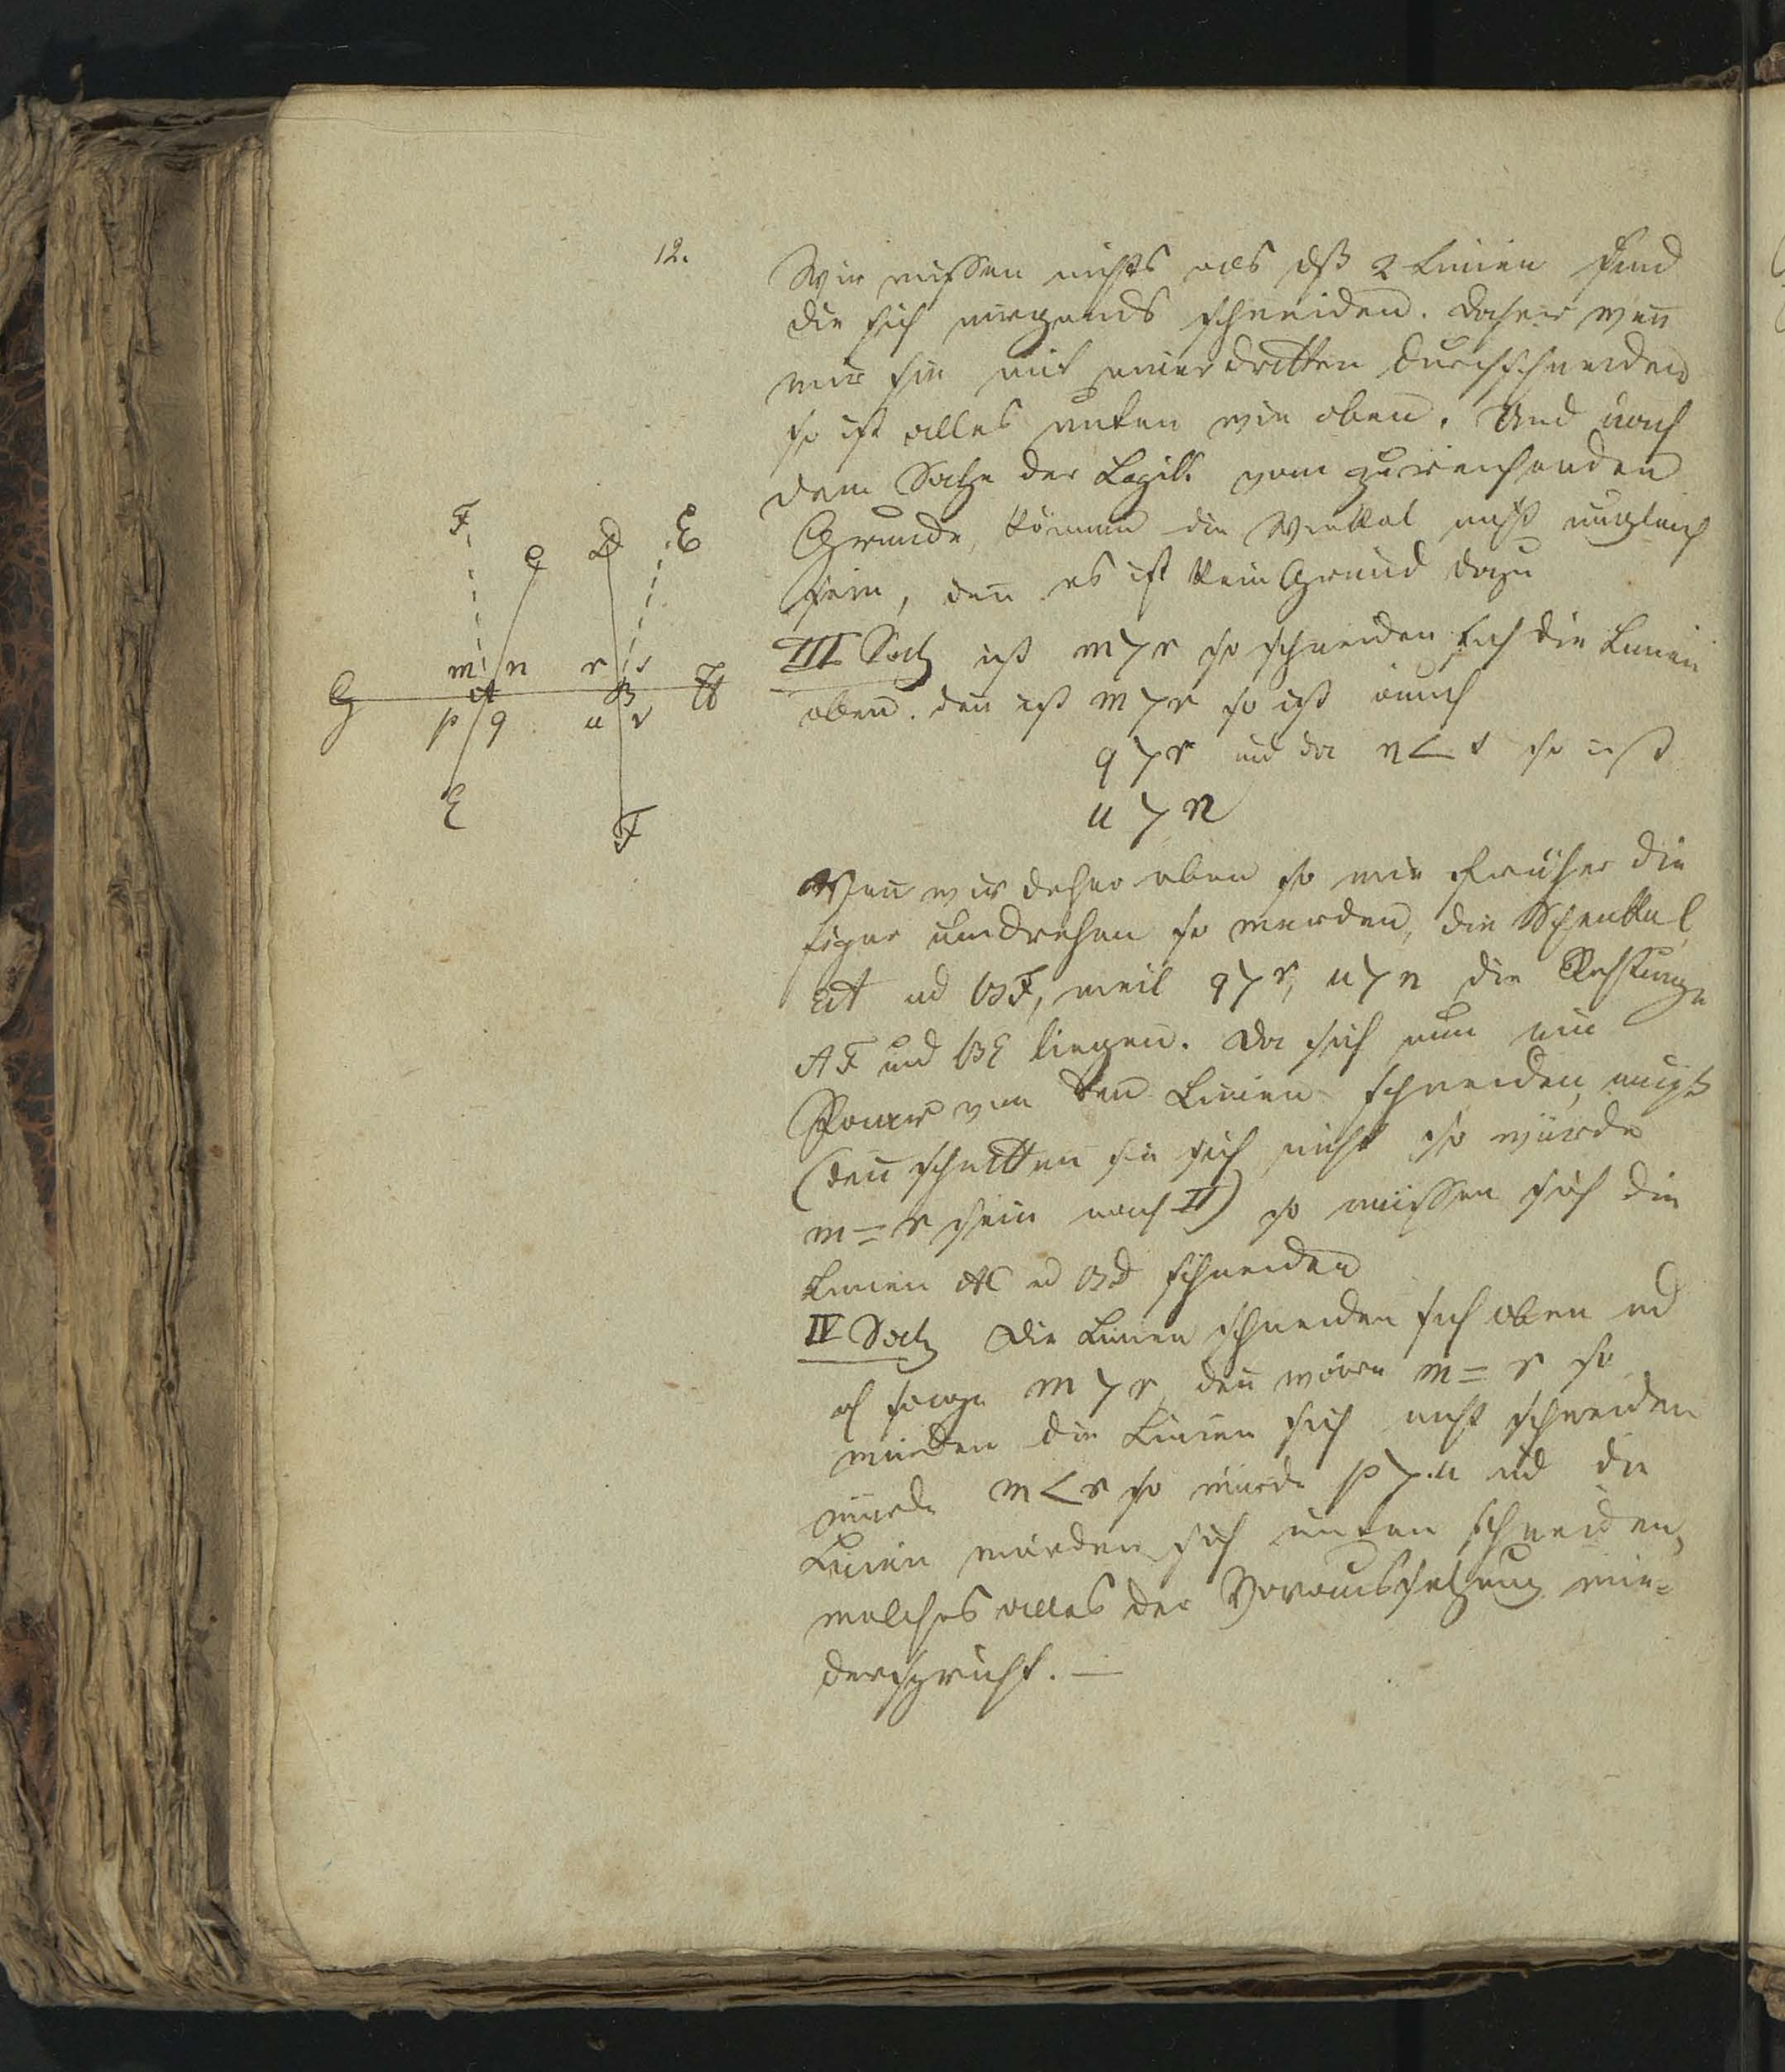 12.
Wir wissen nichts als dß 2 Linien sind
die sich nirgends schneiden. Daher weñ
wir sie mit einer dritten durchschneiden
so ist alles unten wie oben. Und nach
dem Satze der Logik vom zureichenden
Grunde, können die Winkel nicht ungleich
sein, deñ es ist kein Grund dazu
III Satz ist m > r so schneiden sich die Linien
oben. deñ ist m > r so ist auch
q > r und da n < s so ist
u > n
Weñ wir daher eben so wie früher die
Figur umdrehen so werden, die Schenkel
EA ud BF, weil q > r, u > n die Richtung
AF und BE liegen. Da sich nun ein
Paar von den Linien schneiden muß
(deñ schnitten sie sich nicht so würde
m = r sein nach II) so müssen sich die
Linien AC ud BD schneiden
IV Satz Die Linien schneiden sich oben ud
ich sage m > r, deñ wäre m = r so
würden die Linien sich nicht schneiden
würde m < r so würde p > u und die
Linien würden sich unten schneiden,
welches alles der Voraussetzung wie-
derspricht. —
F C D E
m n r s
G A B H
p q u v
E F